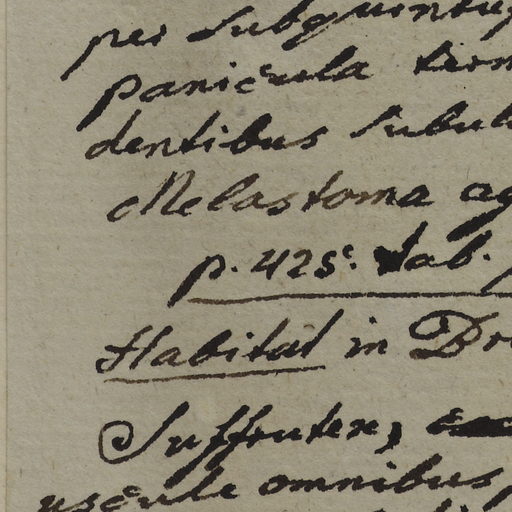 per subquintup
panicula term
dentibus subul
Melastoma ag
p. 425. tab.
Habitat in Br
Suffrutex,
uscule omnibus